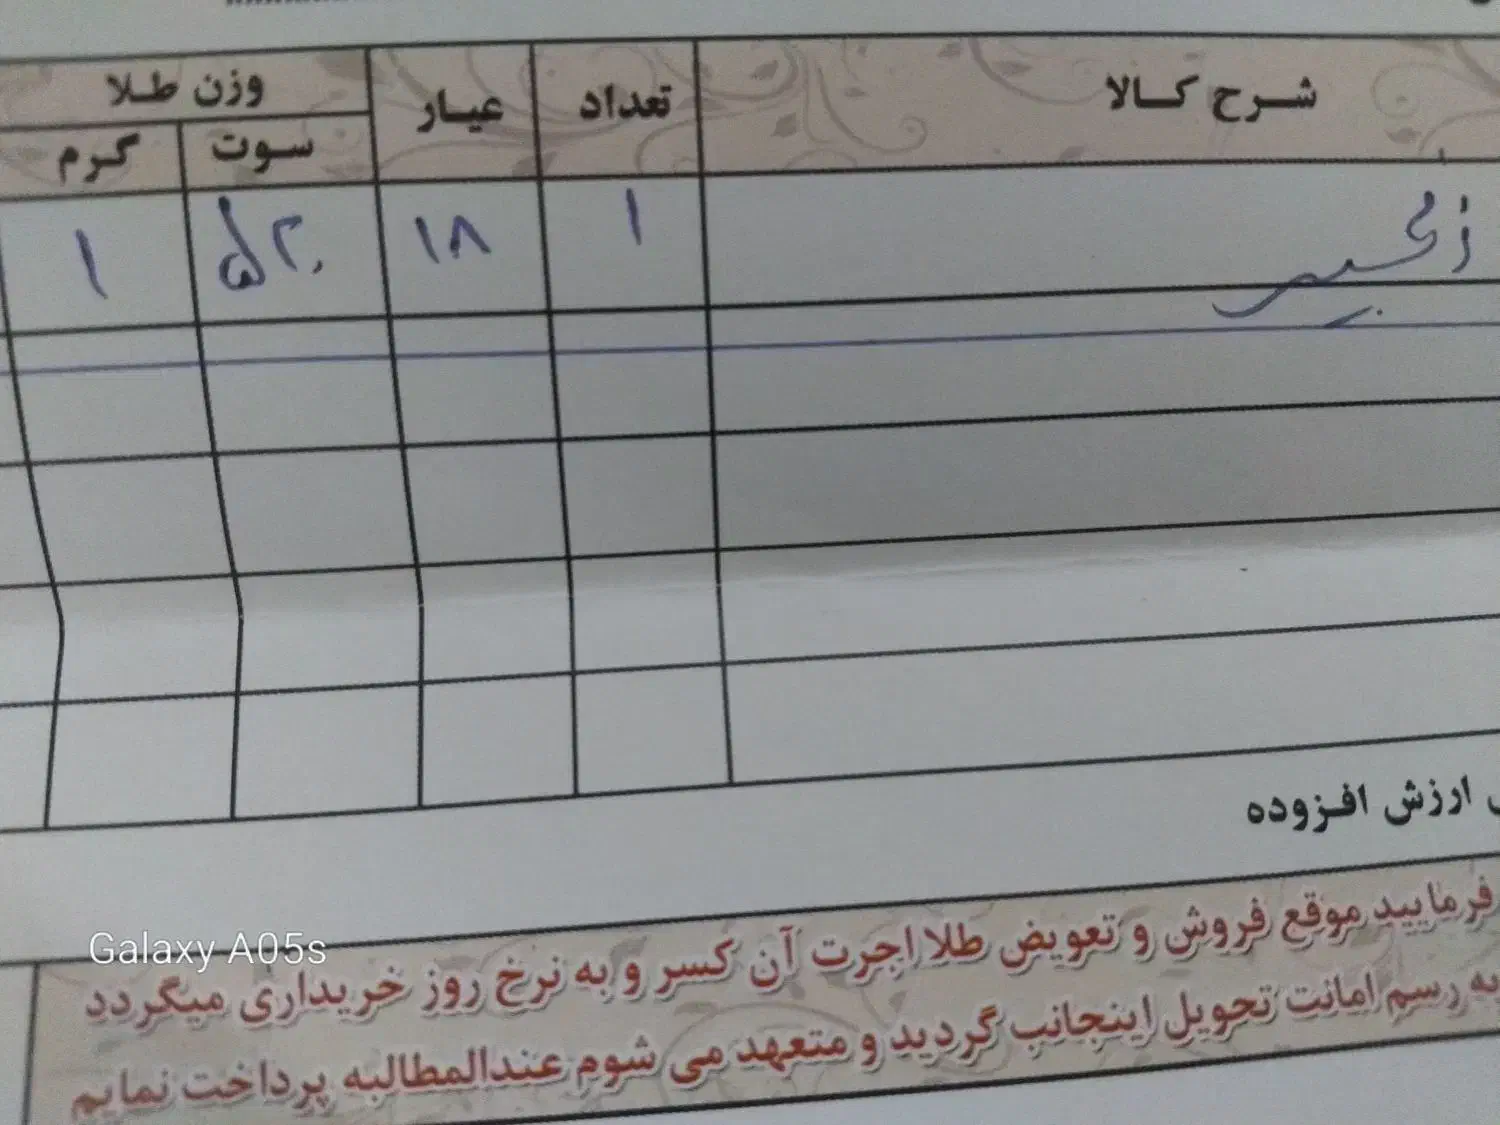 شرح کالا تعداد عیار وزن طلا
سوت گرم
زنجیر ۱ ۱۸ ۱
ارزش افزوده
فرمایید موقع فروش و تعویض طلا اجرت آن کسر و به نرخ روز خریداری میگردد
به رسم امانت تحویل اینجانب گردید و متعهد می شوم عندالمطالبه پرداخت نمایم
Galaxy A05s